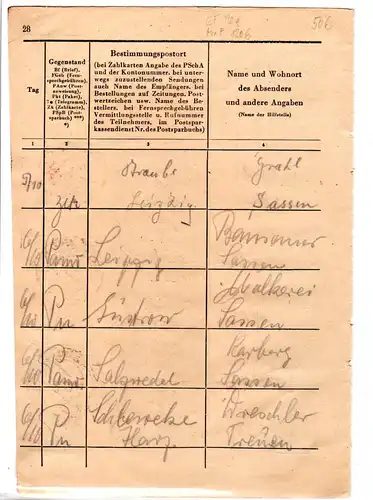 28
Tag
Gegenstand
Bf (Brief),
FGeb (Fern-
sprechgebühren),
PAnw (Post-
anweisung),
Pkt (Paket),
(Telegramm),
Zk (Zahlkarte),
PSpB (Post-
sparbuch) ***)
*)
Bestimmungspostort
(bei Zahlkarten Angabe des PSchA
und der Kontonummer, bei unter-
wegs zuzustellenden Sendungen
auch Name des Empfängers, bei
Bestellungen auf Zeitungen, Post-
wertzeichen usw. Name des Be-
stellers, bei Fernsprechgebühren
Vermittlungsstelle u. Rufnummer
des Teilnehmers, im Postspar-
kassendienst Nr. des Postsparbuchs)
Name und Wohnort
des Absenders
und andere Angaben
(Name der Hilfstelle)
1 2 3 4
Straube Grahl
Leipzig Sassen
Leipzig
Sassen
Molkerei
6/10 Pn Güstrow Sassen
Karberg
6/10 Salzwedel Sassen
6/10 Pn Harz